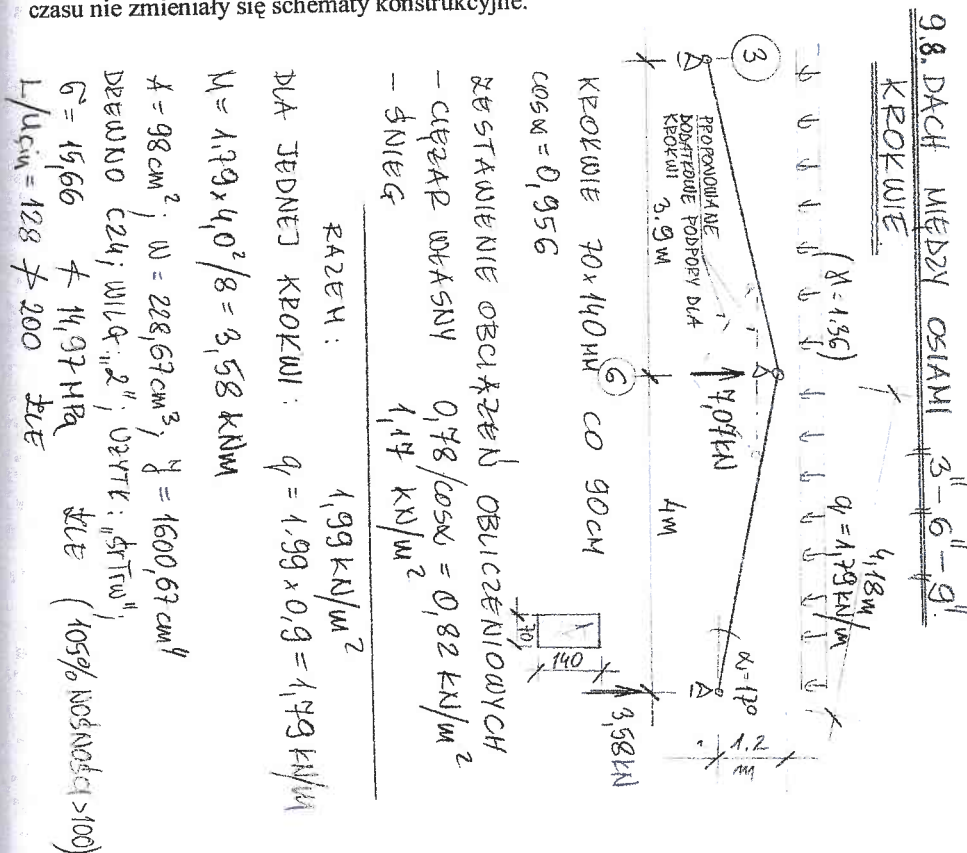 czasu nie zmieniały się schematy konstrukcyjne.
9.8. DACH MIĘDZY OSIAMI „3"-„6"-„9".
KROKWIE
(γ=1.36)
4,18m
q=1,79kN/m
α=17°
1.2
m
3
6
PROPONOWANE
DODATKOWE PODPORY DLA
KROKWI
7,07kN
3,58kN
3.9m
4m
KROKWIE 70x140MM CO 90CM
70
140
cosα=0,956
ZESTAWIENIE OBCIĄŻEŃ OBLICZENIOWYCH
- CIĘŻAR WŁASNY 0,78/cosα = 0,82 kN/m²
- ŚNIEG 1,17 kN/m²
RAZEM: 1,99kN/m²
DLA JEDNEJ KROKWI: q = 1.99 x 0,9 = 1,79 kN/m
M = 1.79 x 4,0²/8 = 3,58 kNm
A = 98cm²; W = 228,67cm³; J = 1600,67cm⁴
DREWNO C24; WILG. „2"; UŻYTK: „śrTrw";
σ = 15,66 ≯ 14,97 MPa ŹLE (105% NOŚNOŚCI >100)
L/Ucin = 128 ≯ 200 ŹLE